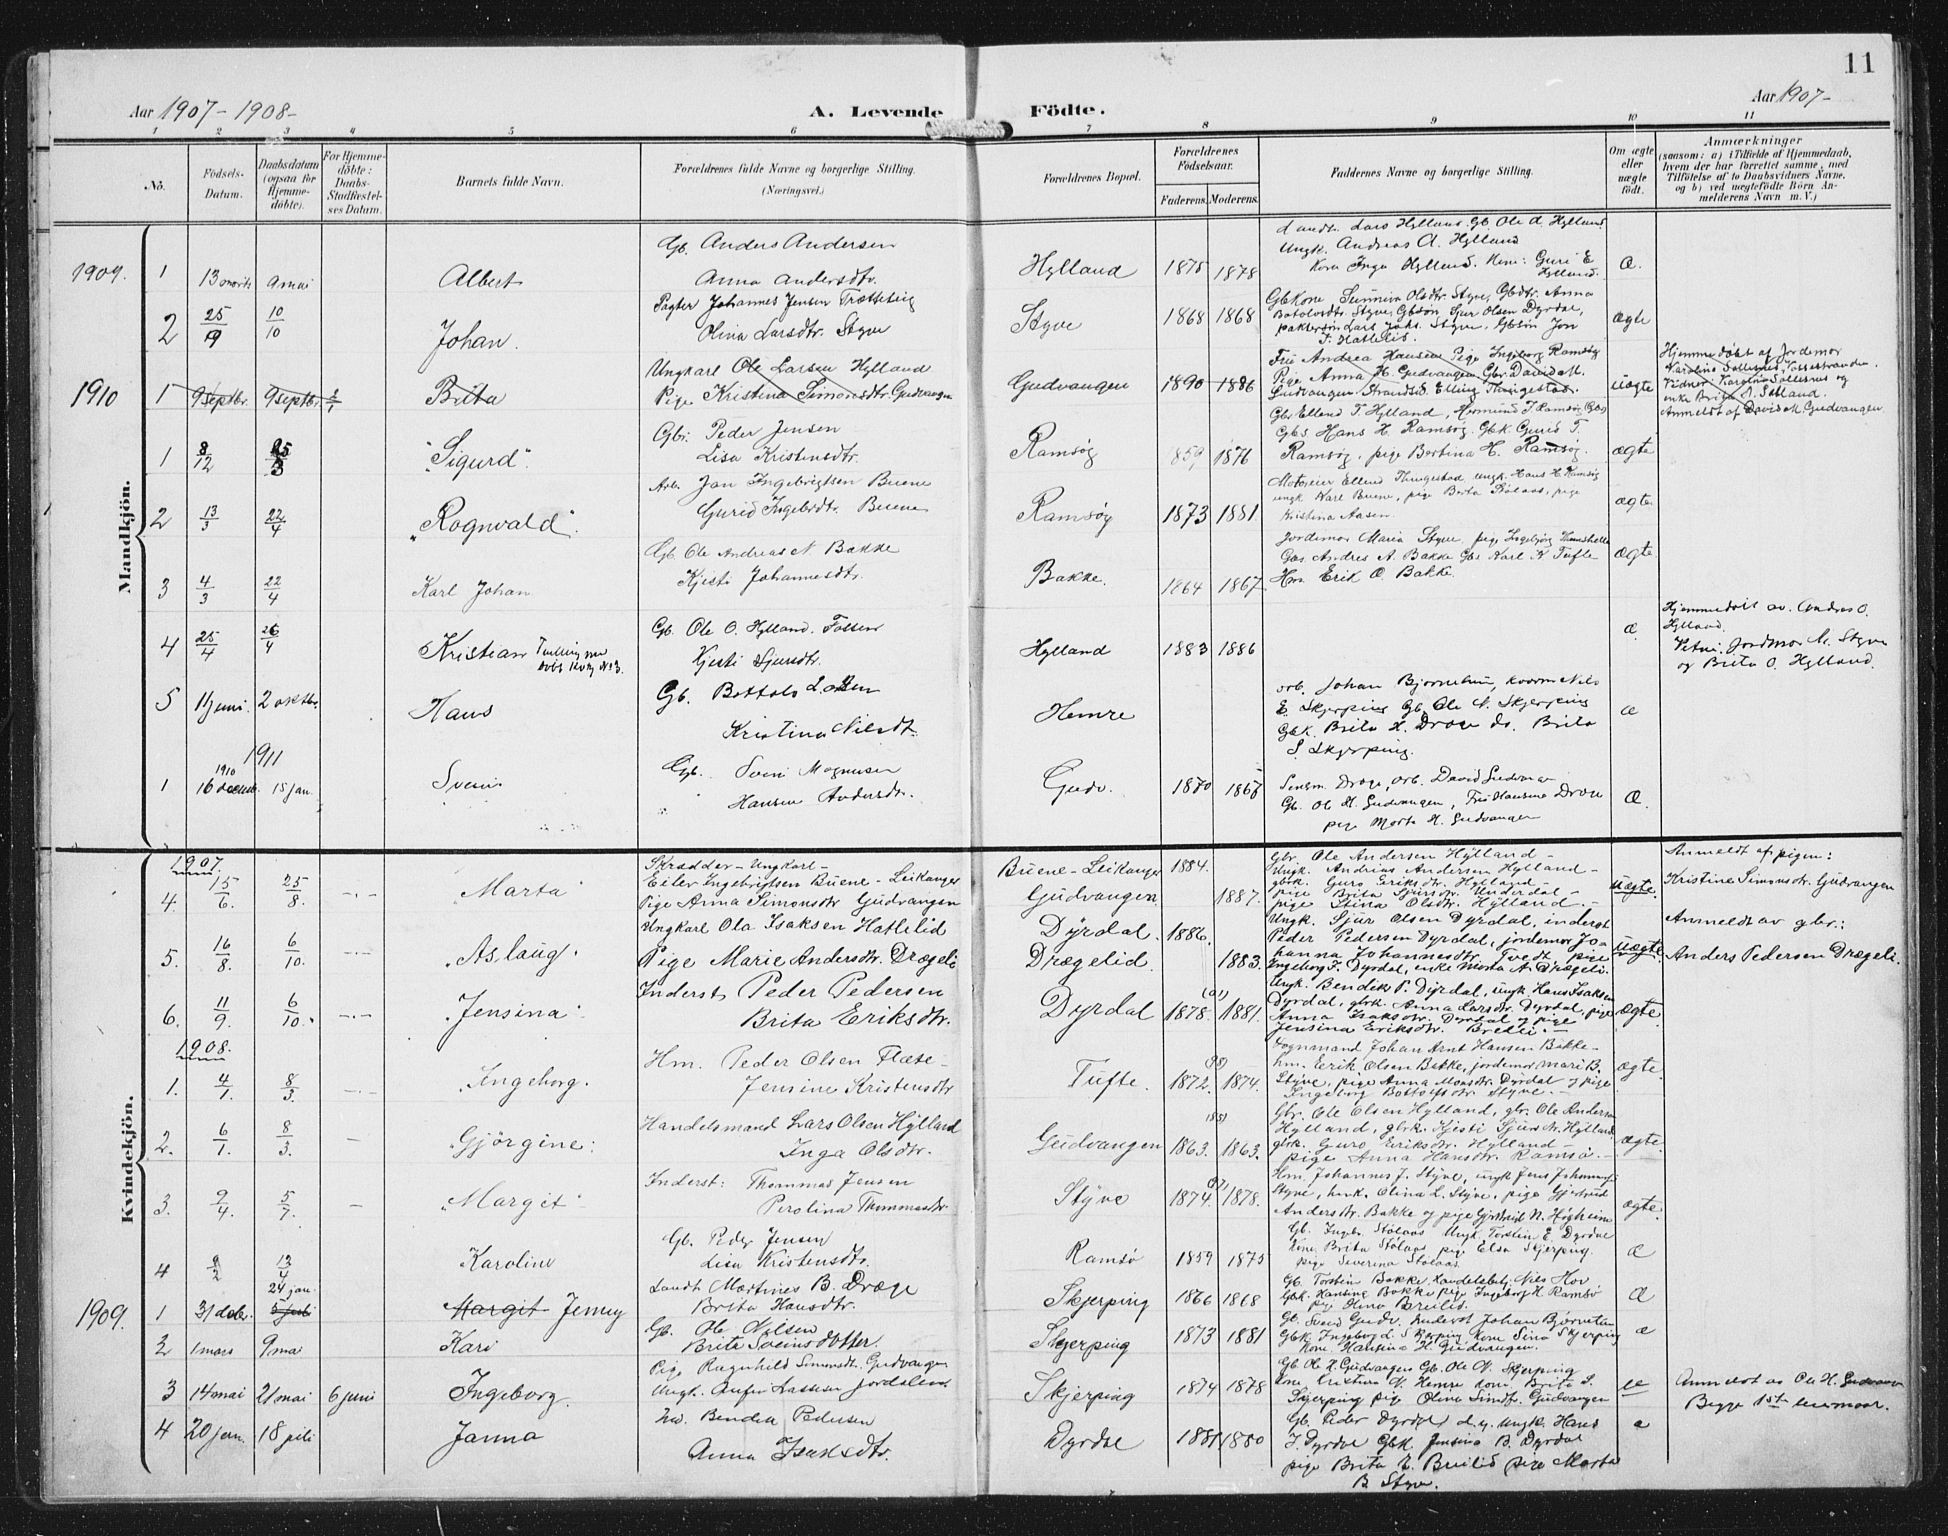 11
Aar 1907-1908-
A. Levende Födte.
Aar 1907-
1 2 3 4 5 6 7 8 9 10 11
No.
Födsels-Datum.
Daabsdatum (ogsaa for Hjemme-döbte).
For Hjemme-döbte: Daabs-Stadfæstel-ses Datum.
Barnets fulde Navn.
Forældrenes fulde Navne og borgerlige Stilling.
(Næringsvei.)
Forældrenes Bopæl.
Forældrenes Födselsaar.
Faderens. Moderens.
Faddernes Navne og borgerlige Stilling.
Om ægte eller uægte födt.
Anmærkninger
(saasom: a) i Tilfælde af Hjemmedaab, hvem der har forrettet samme, med Tilföielse af to Daabsvidners Navne, og b) ved uægtefödte Börn An-melderens Navn m. V.)
Mandkjön.
1909. 1 13 marts 9 mai Albert Gb. Anders Andersen
Anna Andersdtr. Hylland 1878 1878 Æ.
Lars Hylland. Gb. Ole A. Hylland
Ungk. Andreas A. Hylland
Kona Inga Hylland. Kone: Guri E Hylland.
2 25/9 10/10 Johan. Pagter Johannes Jensen Trætteteig
Olina Larsdtr. Styve Styve 1868 1868 ægte
Gbkone Sunneva Olsdtr. Styve, Gbdtr. Anna
Botolvsdtr. Styve, Gbsön Sjur Olsen Dyrdal,
pakterson Lars Johs. Styve, Gbsön Jon
T. Hatlelid.
1910 1 9 septbr. 9 septbr. Brita Ungkarl Ole Larsen Hylland
Pige Kristina Simonsdtr Gudvangen Gudvangen 1890 1886 uægte
Fru Andrea Hansen Pige Ingeborg Ramsøy
Pige Anna H. Gudvangen Gbr. David M.
Gudvangen Strandsid. Elling Thugestad.
Hjemmedøbt af Jordemor
Karoline Sollesnes, Fossestranden
Vidner Karoline Sollesnes og
enke Brita N. Sætland.
Anmeldt af David M. Gudvangen
1 8/12 25/3 "Sigurd". Gbr. Peder Jensen
Lisa Kristensdtr. Ramsøy 1859 1876 ægte
Gbr. Ellend T. Hylland, Hermund J. Ramsøy, Gbs
Gbs Hans H. Ramsøy. Gbk. Gurid T.
Ramsøy, pige Bertina H. Ramsøy.
2 13/3 22/4 "Rognvald". Arb. Jan Ingebrigtsen Buene
Gurid Ingebrdtr. Buene Ramsøy 1873 1881 ægte.
Motoreier Ellend Thugestad ungk. Hans H. Ramsøy
ungk Karl Buene, pige Berta Stølaas, pige
Kristina Aasen.
3 4/3 22/4 Karl Johan Gb. Ole Andreas N Bakke
Kjersti Johannesdtr. Bakke. 1864 1867 ægte
Jordemor Maria Styve pige Ingebjörg
Gbs. Andres A. Bakke Gbs Karl K Tufte
Hm. Erik O. Bakke.
4 25/4 26/4 Kristian Tvilling med Gb. Ole O. Hylland.
Kjersti Sjursdtr. Hylland 1883 1886 æ.
Hjemmedøbt av. Andres O.
Hylland.
Vetni. Jordmor M. Styve
og Brita O. Hylland.
5 11 juni. 2 oktbr. Hans Gb. Bottolv Larsen
Kristina Nilsdt. Hemre æ
arb. Johan Bjørnetun, Nils
E. Skjerping Gb. Ole N. Skjerping
Gbk. Brita H. Dræge do. Brita
S. Skjerping.
1911
1 1910 16 decemb. 15 jan. Svein Gb. Svein Magnusen
Hansine Andersdtr. Gudv. 1870 1868 Æ.
Dræge, arb. David Gudvangen
Gb. Ole H. Gudvangen, Fru Hansine Dræge
pige Marta H. Gudvangen
Kvindekjön.
1907.
4. 15/6. 25/8. -.- Marta Skrædder - Ungkarl -
Eiler Ingebrigtsen Buene - Leikanger
Pige Anna Simonsdtr Gudvangen
Buene-Leikanger 1884.
Gudvangen 1887. uægte.
Gbr. Ole Andersen Hylland -
Ungk. Andrias Andersen Hylland -
gbrk. Guro Eriksdtr. Hylland -
pige Brita Sjursdtr. Underdal -
pige Stina Olsdtr. Hylland. -
Anmeldt af pigen:
Kristine Simonsdtr Gudvangen
5. 16/8. 6/10. -.- "Aslaug". Ungkarl Ola Isaksen Hatlelid
Pige Marie Andersdtr. Drægeli
Dyrdal. 1886.
Drægelid. 1883. uægte.
Ungk. Sjur Olsen Dyrdal, inderst
Peder Pedersen Dyrdal, jordemor Jo-
hanna Johannesdtr. Tvedt pige
Ingeborg J. Dyrdal, enke Marta A. Drægeli.
Anmeldt av gbr.:
Anders Pedersen Drægeli.
6. 11/9. 6/10. -.- "Jensina". Inderst Peder Pedersen
Brita Eriksdtr. Dyrdal 1878. (01) 1881. ægte.
Ungk. Bendik P. Dyrdal, ungk Hans Isaksen
Dyrdal, gbrk. Anna Larsdtr. Dyrdal, pige
Anna Isaksdtr. Dyrdal og pige
Jensina Eriksdtr. Breili. -
1908.
1. 4/1. 8/3. -.- "Ingeborg. Hm. Peder Olsen Flæte -
Jensine Kristensdtr Tufte. 1872. (98) 1874. ægte.
Johan Arnt Hansen Bakke -
hm. Erik Olsen Bakke, jordemor Mari B.
Styve, pige Anna Monsdtr. Dyrdal og pige
Ingeborg Bottolfsdtr Styve. -
2. 6/1. 8/3. - "Gjörgine: Handelsmand Lars Olsen Hylland
Inga Olsdtr. Gudvangen 1863. 1863. ægte.
Gbr. Ole Olsen Hylland, gbr. Ole Andersen
Hylland, gbrk. Kjersti Sjursdtr. Hylland
gbrk. Guro Eriksdtr. Hylland -
pige Anna Hansdtr. Ramsø. -
3. 2/4. 5/7. - "Margit" Inderst: Thommas Jensen
Perolina Thommasdtr. Styve 1874. 1878. ægte.
Hm. Johannes J. Styve, ungk Jens Johannes
Styve, hmk. Olina L. Styve, pige Gjertrud
Andersdtr. Bakke og pige Gjertrud N. Høgheim
4 9/2 13/4 Karoline Gb. Peder Jensen
Lisa Kristensdtr. Ramsø 1859 1875 æ
Gb. Ingbr. Stølaas Ungk. Torstein E. Dyrdal
Kone Brita Stølaas pige Elsa Skjerping.
pige Severina Stølaas.
1909. 1 31 debr. 24 jan. Margit Jenny Landh Martinus B. Dræge
Brita Hansdtr. Skjerping 1866 1868 Æ
Gb. Torstein Bakke, Handelsbetj. Nils Hov
Gbk. Hansina Bakke pige Ingeborg H. Ramsø
pig Stina Breilid.
2 1 mars 9 mai Kari Gb. Ole Nilsen
Brita Sveinsdotter. Skjerping 1873 1881 æ
Gb. Svend Gudv. Inderst Johan Bjørnetun
Gbk. Ingeborg L. Skjerping Kone Sina Skjerping
Kone. Hansina H. Gudvangen.
3 14 mai 21 mai 6 juni Ingeborg. Pig. Ragnhild Simonsdt. Gudvangen
Ungk. Anfin Aassen Jordalen. Skjerping 1874 1878 ue
Gb. Ol. H. Gudvangen Gb. Ole N. Skjerping
Kone Kristina N. Hemre Kone. Brita S.
Skjerping pige Olina Simdt. Gudvangen
Anmeldt av Ole H. Gudvangen
Begge 1ste leiermaal.
4 20 jan. 18 juli Janna Bendik Pedersen
Anna Isaksdtr. Dyrdal 1881 1880 æ
Gb. Peder Dyrdal d.y. Ungk. Hans
I. Dyrdal Gbk. Jensina B. Dyrdal
pige Brita E. Breilid pige Marta
B. Styve.